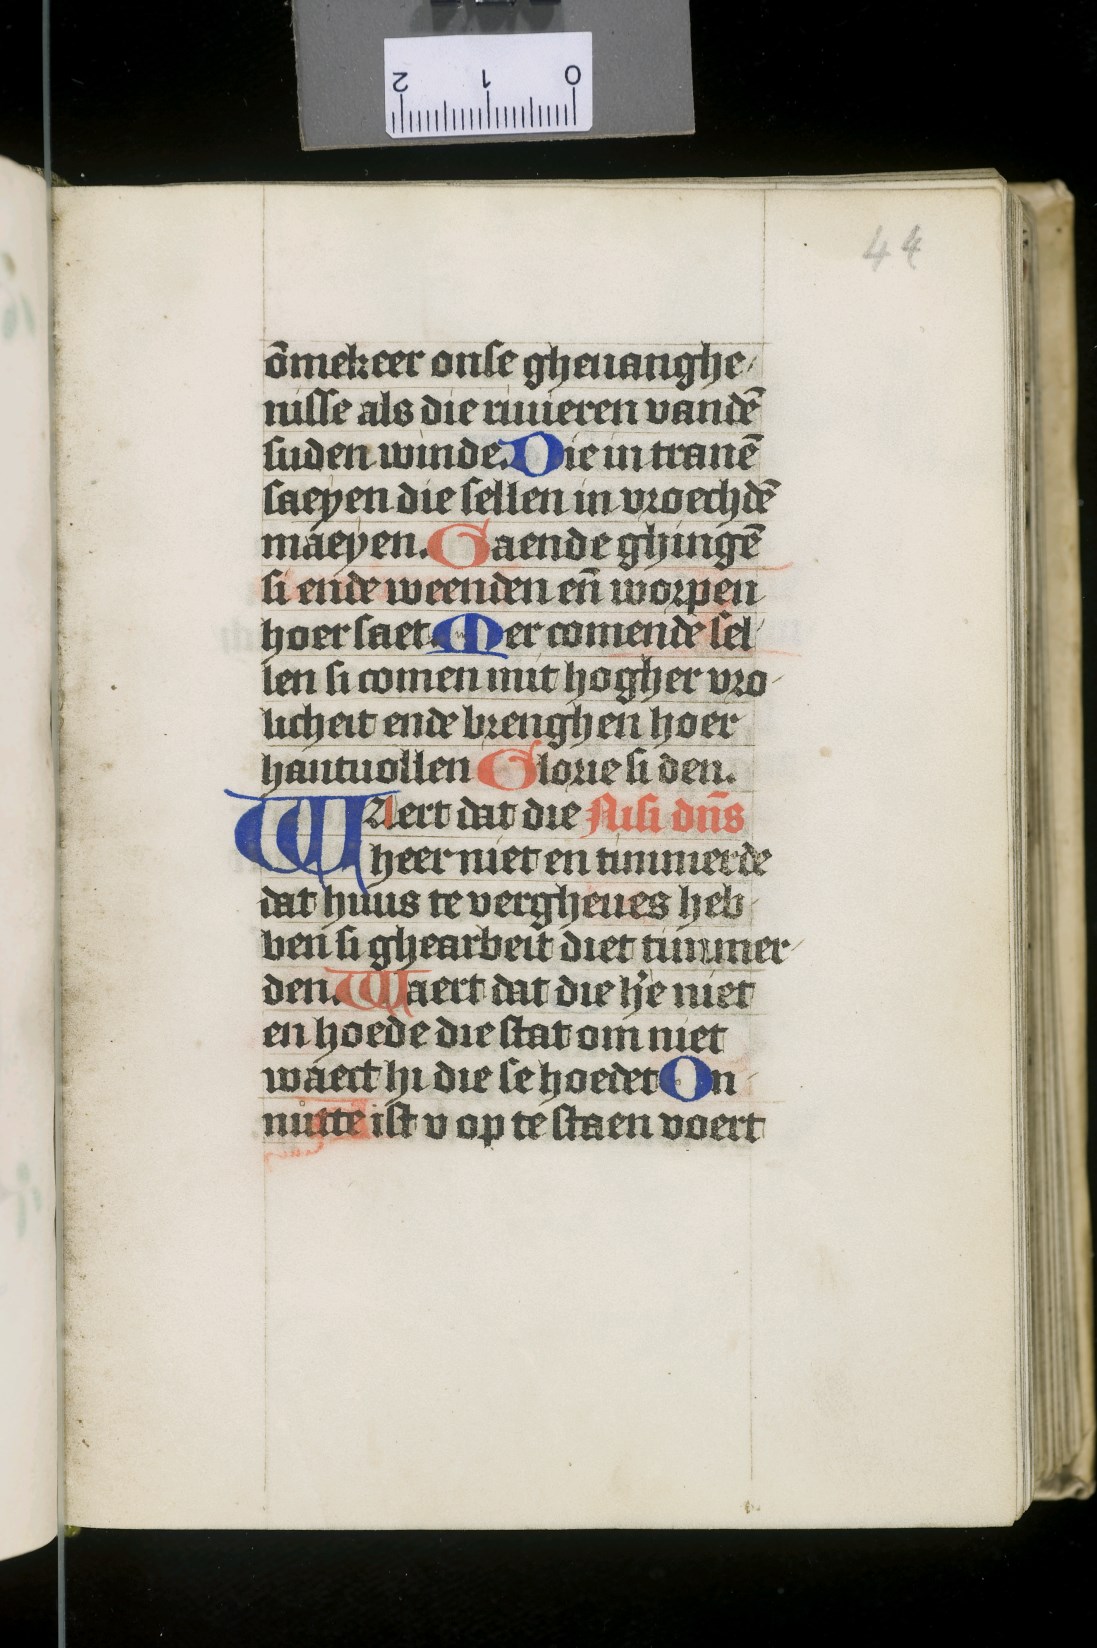 2 1 0
44
ōmekeer onse gheuanghe/
nisse als die riuieren vandē
suden winde. Die in tranē
saeyen die sellen in vroechdē
maeyen. Gaende ghingē
si ende weenden eñ worpen
hoer saet. Mer comende sel
len si comen mit hogher vro
licheit ende brenghen hoer
hantuollen Glorie si den.
WAert dat die Nisi dñs
heer niet en timmerde
dat huus te vergheues heb
ben si ghearbeit diet timmer/
den. Waert dat die h̄e niet
en hoede die stat om niet
waect hi die se hoedet On
nutte ist v op te staen voert